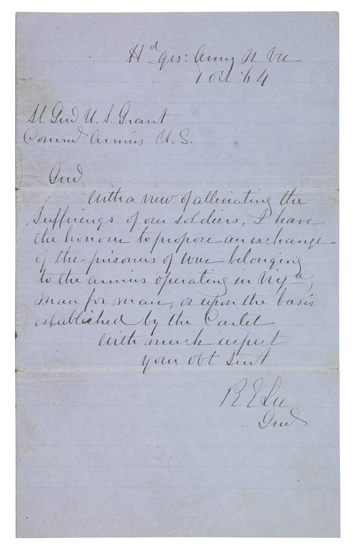 Hd qrs: Army N. Va
1 Oct '64
Lt Genl U. S. Grant
Commd Armies U. S.
Genl
With a view of alleviating the
sufferings of our soldiers, I have
the honour to propose an exchange
of the prisoners of war belonging
to the armies operating in Virga,
man for man, or upon the basis
established by the Cartel
With much respect
your obt Servt
R E Lee
Genl